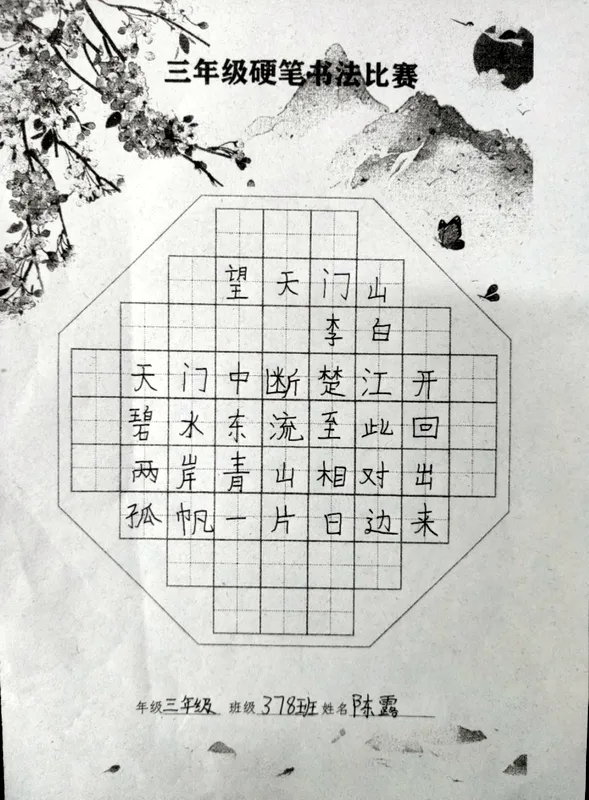 三年级硬笔书法比赛
望天门山
李白
天门中断楚江开
碧水东流至此回
两岸青山相对出
孤帆一片日边来
年级三年级 班级378班 姓名陈露